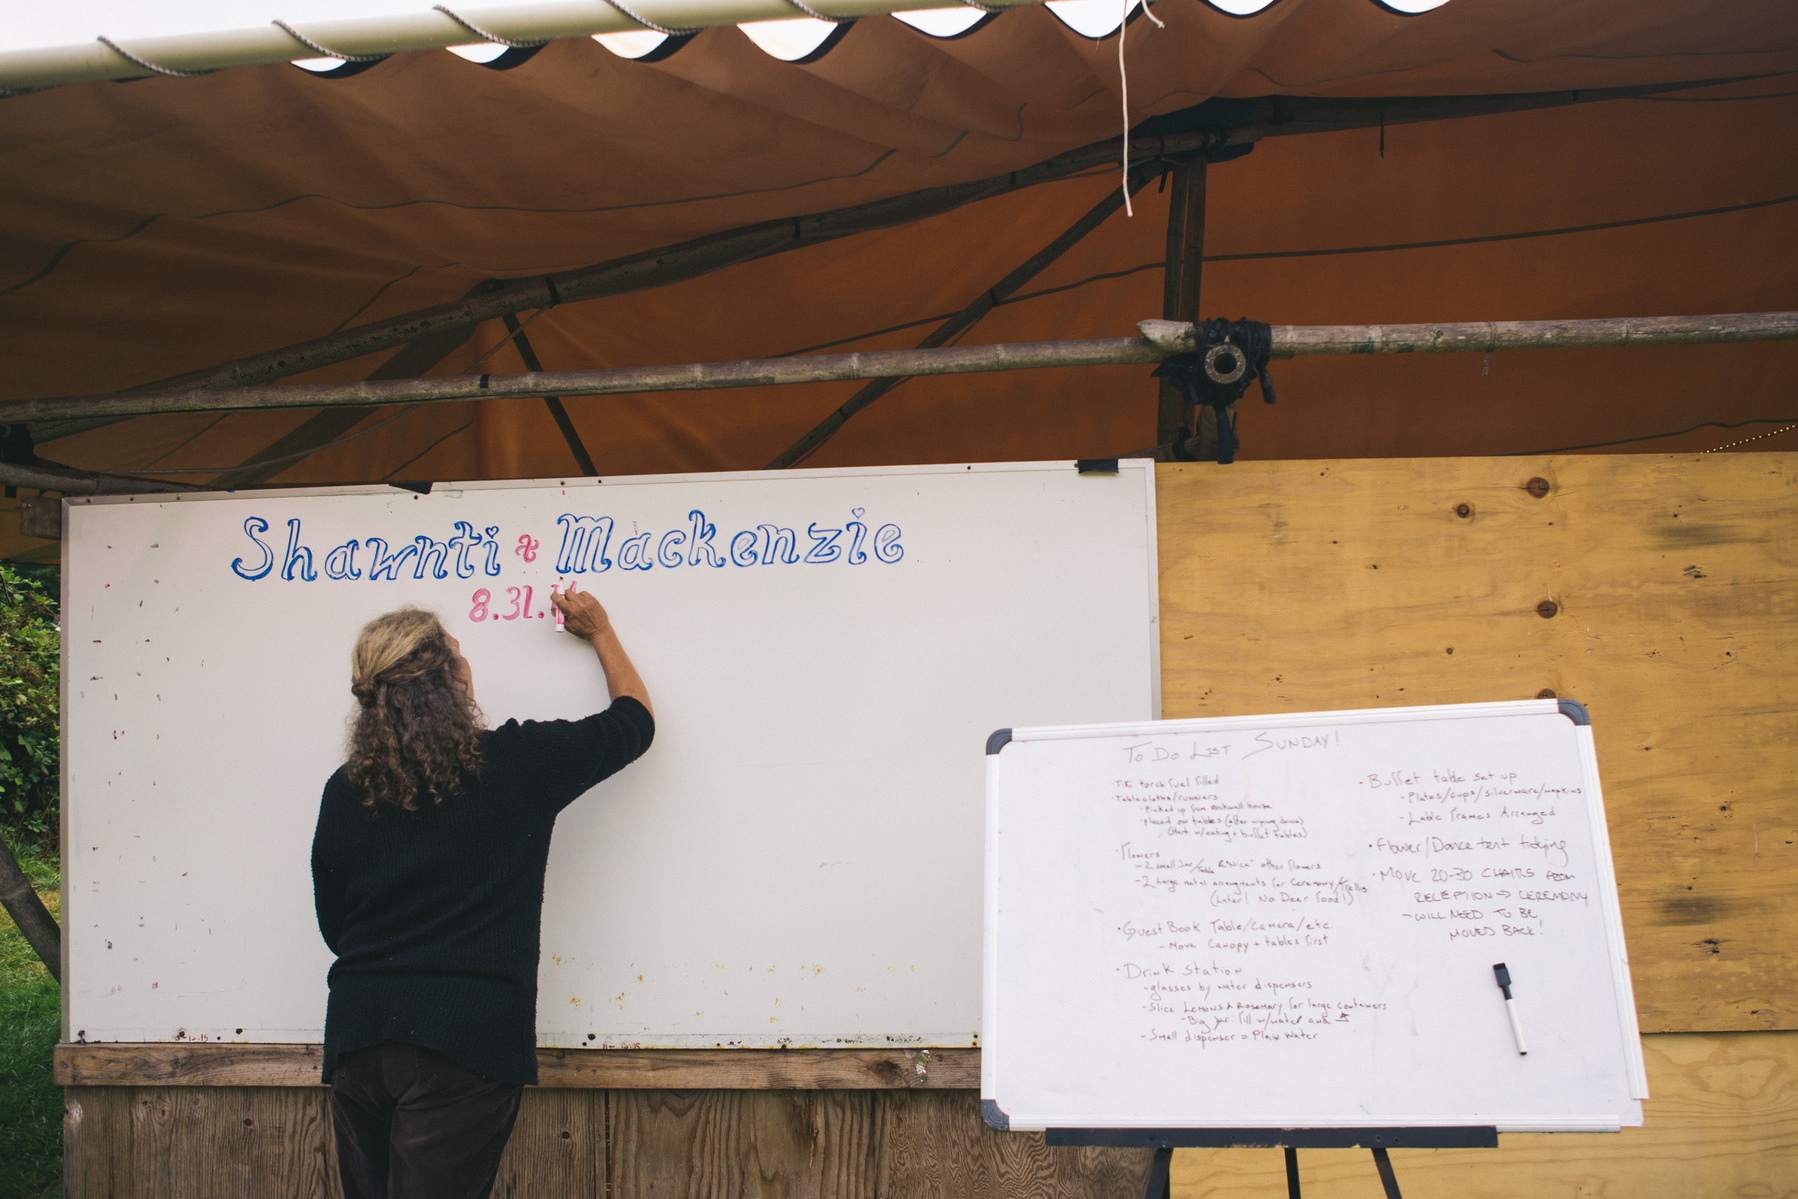 Shawnti & Mackenzie
8.31.
To Do List Sunday!
Tiki torch fuel filled
· Tablecloths/runners
· Picked up from house
· Placed on tables (after wiping down)
(start w/eating + buffet tables)
· Flowers
- 2 small jar/table & "nice" other flowers
- 2 Large metal arrangments for Ceremony/trellis
(Later! No Deer Food!)
· Guest Book Table/Camera/etc...
- Move Canopy + tables first
· Drink station
- glasses by water dispensers
- Slice Lemons & Rosemary for large containers
- Big jar: fill w/water and
- Small dispenser = Plain water
· Buffet table set up
- Plates/cups/silverware/napkins
- Table Frames Arranged
· Flower/Dance tent tidying
· MOVE 20-30 CHAIRS FROM
RECEPTION → CEREMONY
- WILL NEED TO BE
MOVED BACK!